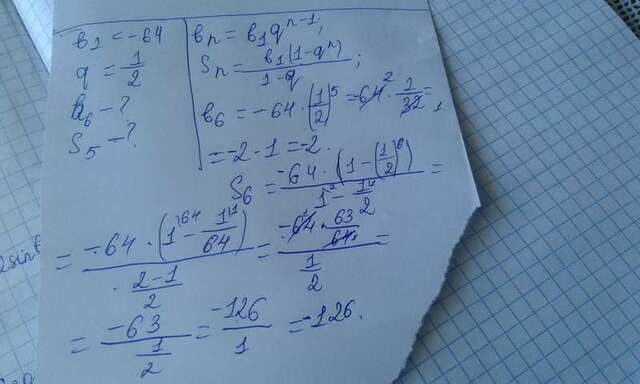 b₁ = -64
q = 1/2
b₆ - ?
S₅ - ?
bₙ = b₁qⁿ⁻¹;
Sₙ = b₁(1-qⁿ)/1-q;
b₆ = -64 · (1/2)⁵ = -64² · 1/32₁ =
= -2 · 1 = -2.
S₆ = -64 · (1 - (1/2)⁶)/1² - 1/2 =
= -64 · (1⁶⁴ - 1/64)/2-1/2 = -64¹ · 63/64₁/1/2 =
= -63/1/2 = -126/1 = -126.